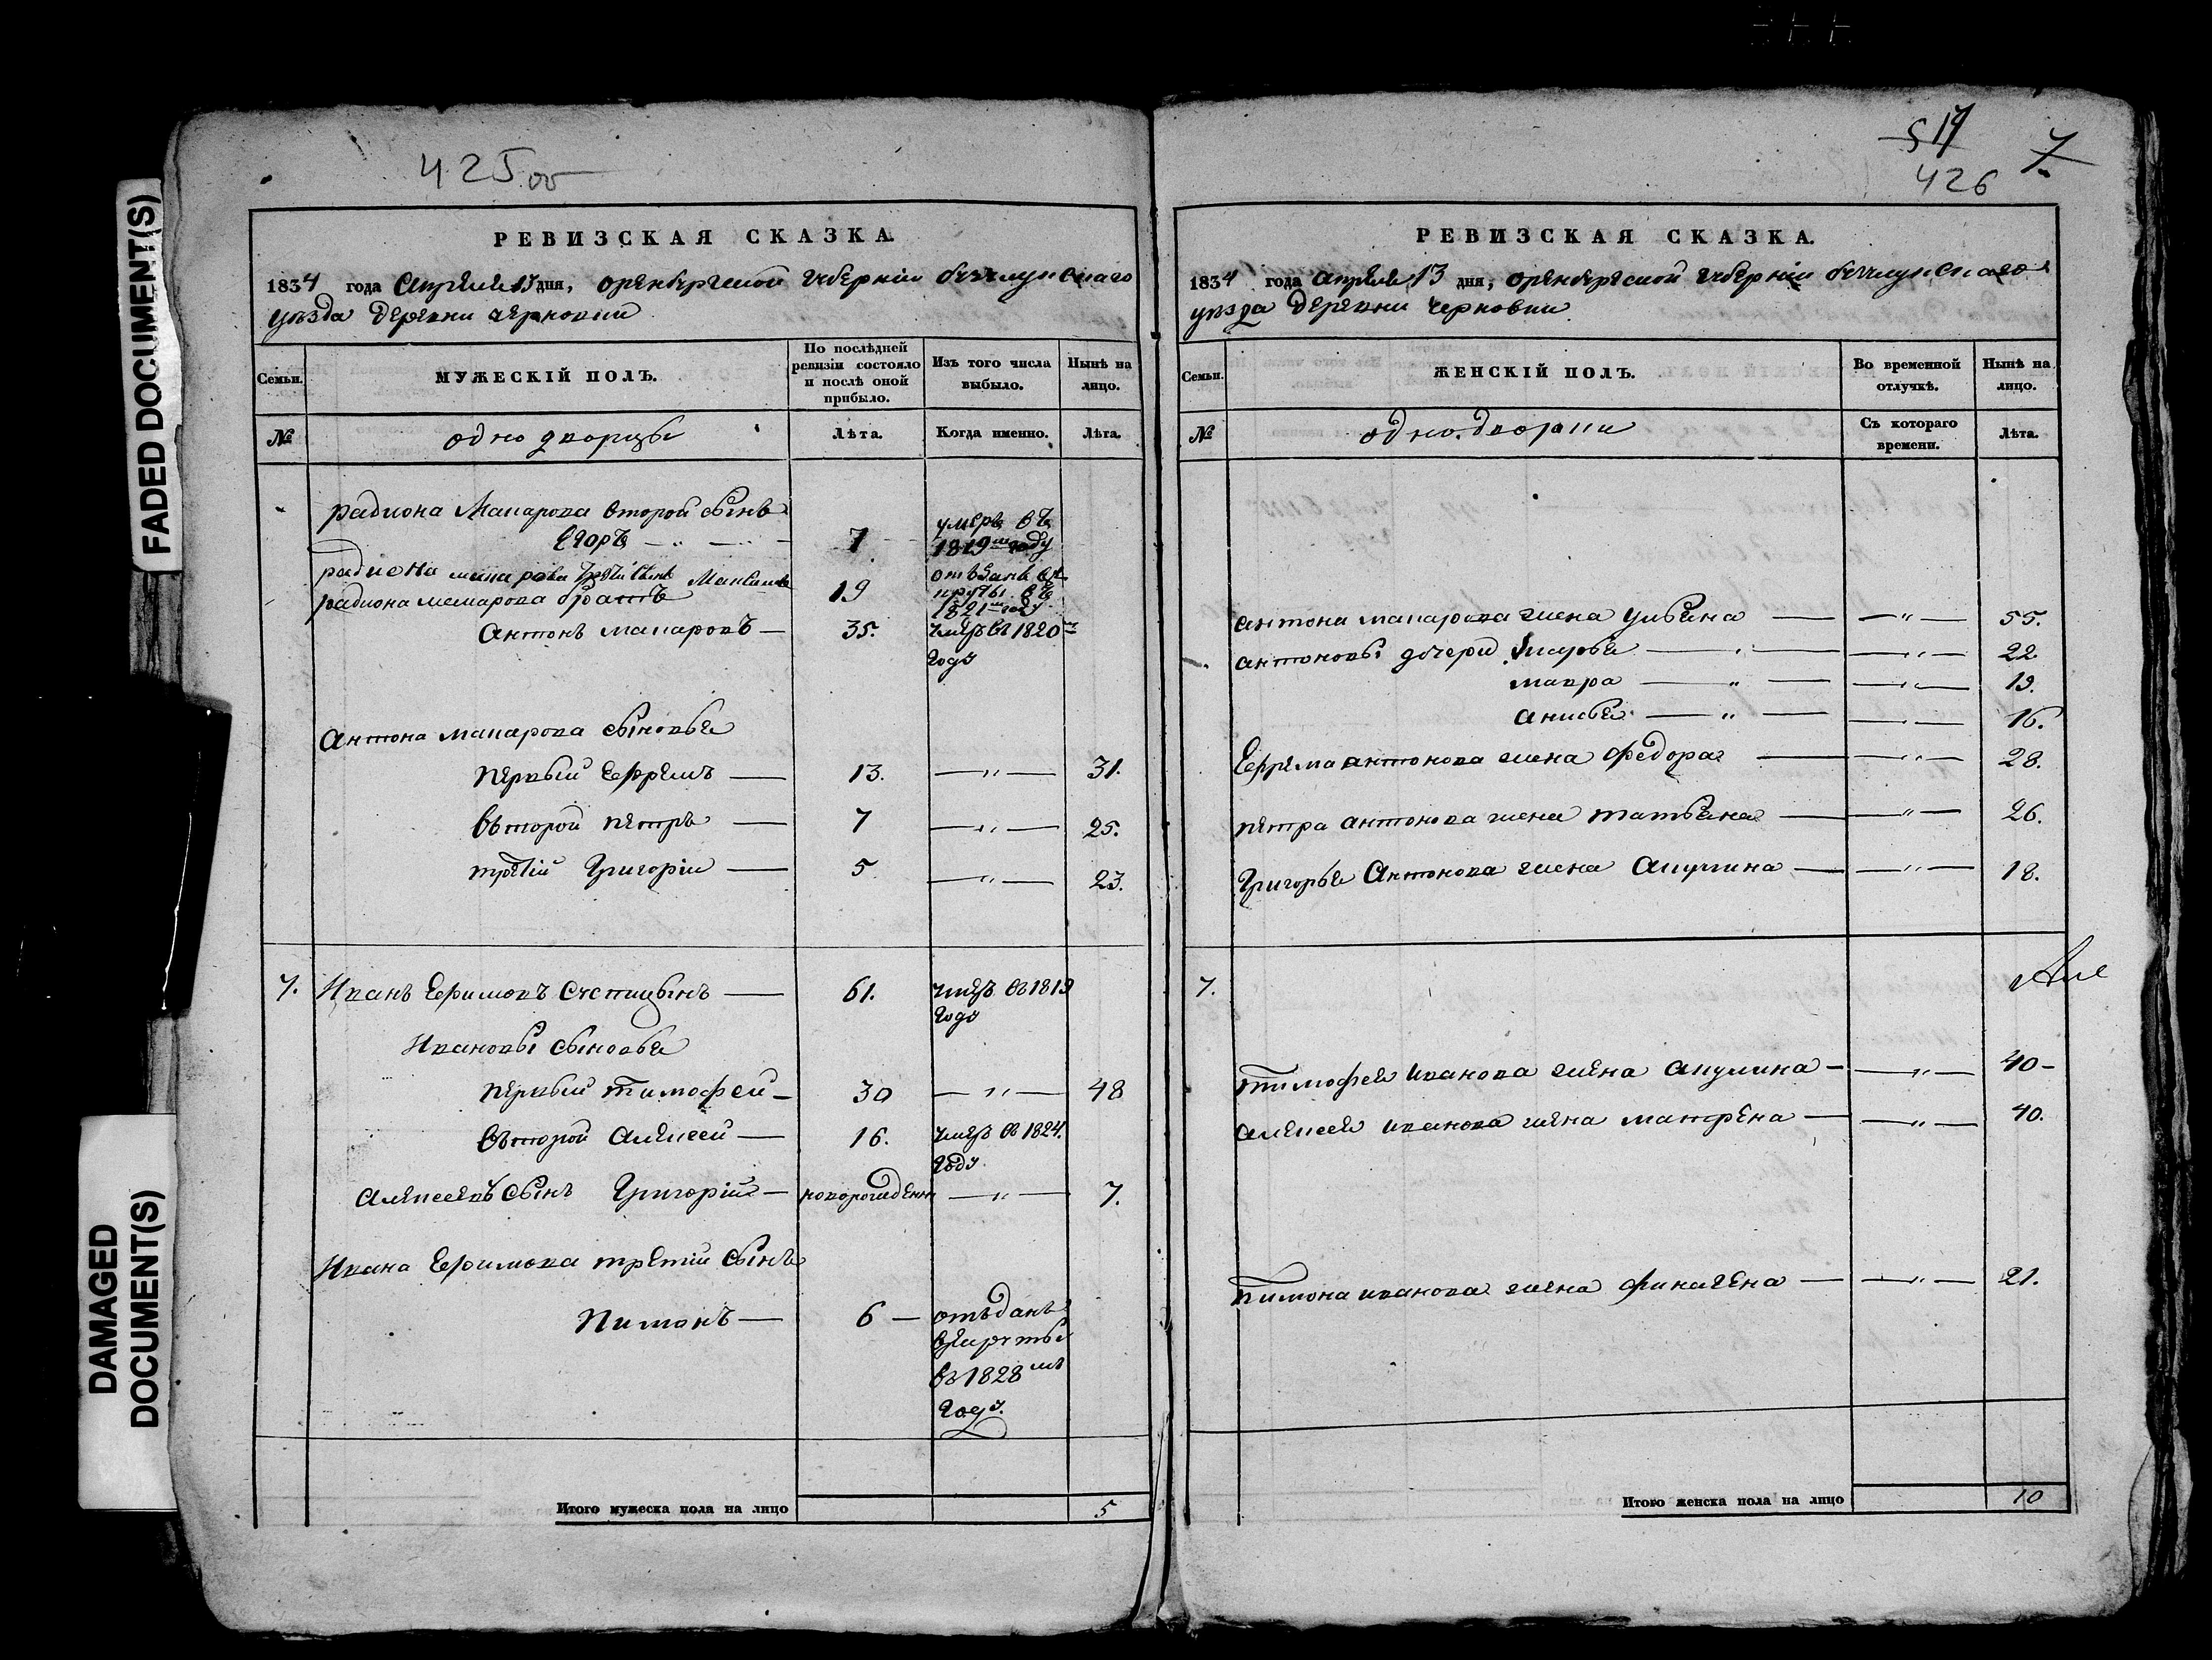 FADED DOCUMENT(S)
DAMAGED
DOCUMENT(S)
425 об
РЕВИЗСКАЯ СКАЗКА.
1834 года Апреля 13 дня, оренбергской губернiи бузулунскаго
уѣзда Деревни черновки
Семьи.
МУЖЕСКIЙ ПОЛЪ.
По послѣдней
ревизiи состояло
и послѣ оной
прибыло.
Изъ того числа
выбыло.
Нынѣ на
лицо.
№
однодворцы
Лѣта.
Когда именно.
Лѣта.
радиона Макарова второй сынъ
Егоръ — 7 умеръ въ 1819м году
радиона макарова третiй сынъ Максимъ 19 отъданъ въ рекруты въ 1821м году
радиона макарова братъ
Антонъ макаровъ — 35. умеръ въ 1820м
году
Антона макарова сыновья
первый Ефремъ — 13. —„— 31.
въторой петръ — 7 —„— 25.
третiй Григорiй — 5 —„— 23.
7. Иванъ Ефимовъ — 61. умеръ въ 1819
году
Ивановы сыновья
первый тимофей — 30 —„— 48
въторой алексей — 16. умеръ въ 1824.
году
алексеевъ сынъ Григорiй — новорожденъ —„— 7.
Ивана Ефимова третiй сынъ
Пимонъ — 6 — отъданъ
в рекруты
въ 1828мъ
году.
Итого мужеска пола на лицо 5
517
426
7.
РЕВИЗСКАЯ СКАЗКА.
1834 года апреля 13 дня, оренбергской губернiи бузулунскаго
уѣзда Деревни черновки
Семьи.
ЖЕНСКIЙ ПОЛЪ.
Во временной
отлучкѣ.
Нынѣ на
лицо.
№
однодворки
Съ котораго
времени.
Лѣта.
антона макарова жена ульяна — —„— 55.
антоновы дочери марья — —„— 22.
мавра — „ — —„— 19.
анисья — „ — —„— 16.
Ефрема антонова жена федора — —„— 28.
петра антонова жена татьяна — —„— 26.
Григорья Антонова жена Акулина — —„— 18.
7.
тимофея иванова жена акулина — —„— 40-
алексея иванова жена матрена — —„— 40.
пимона иванова жена финагена — —„— 21.
Итого женска пола на лицо 10